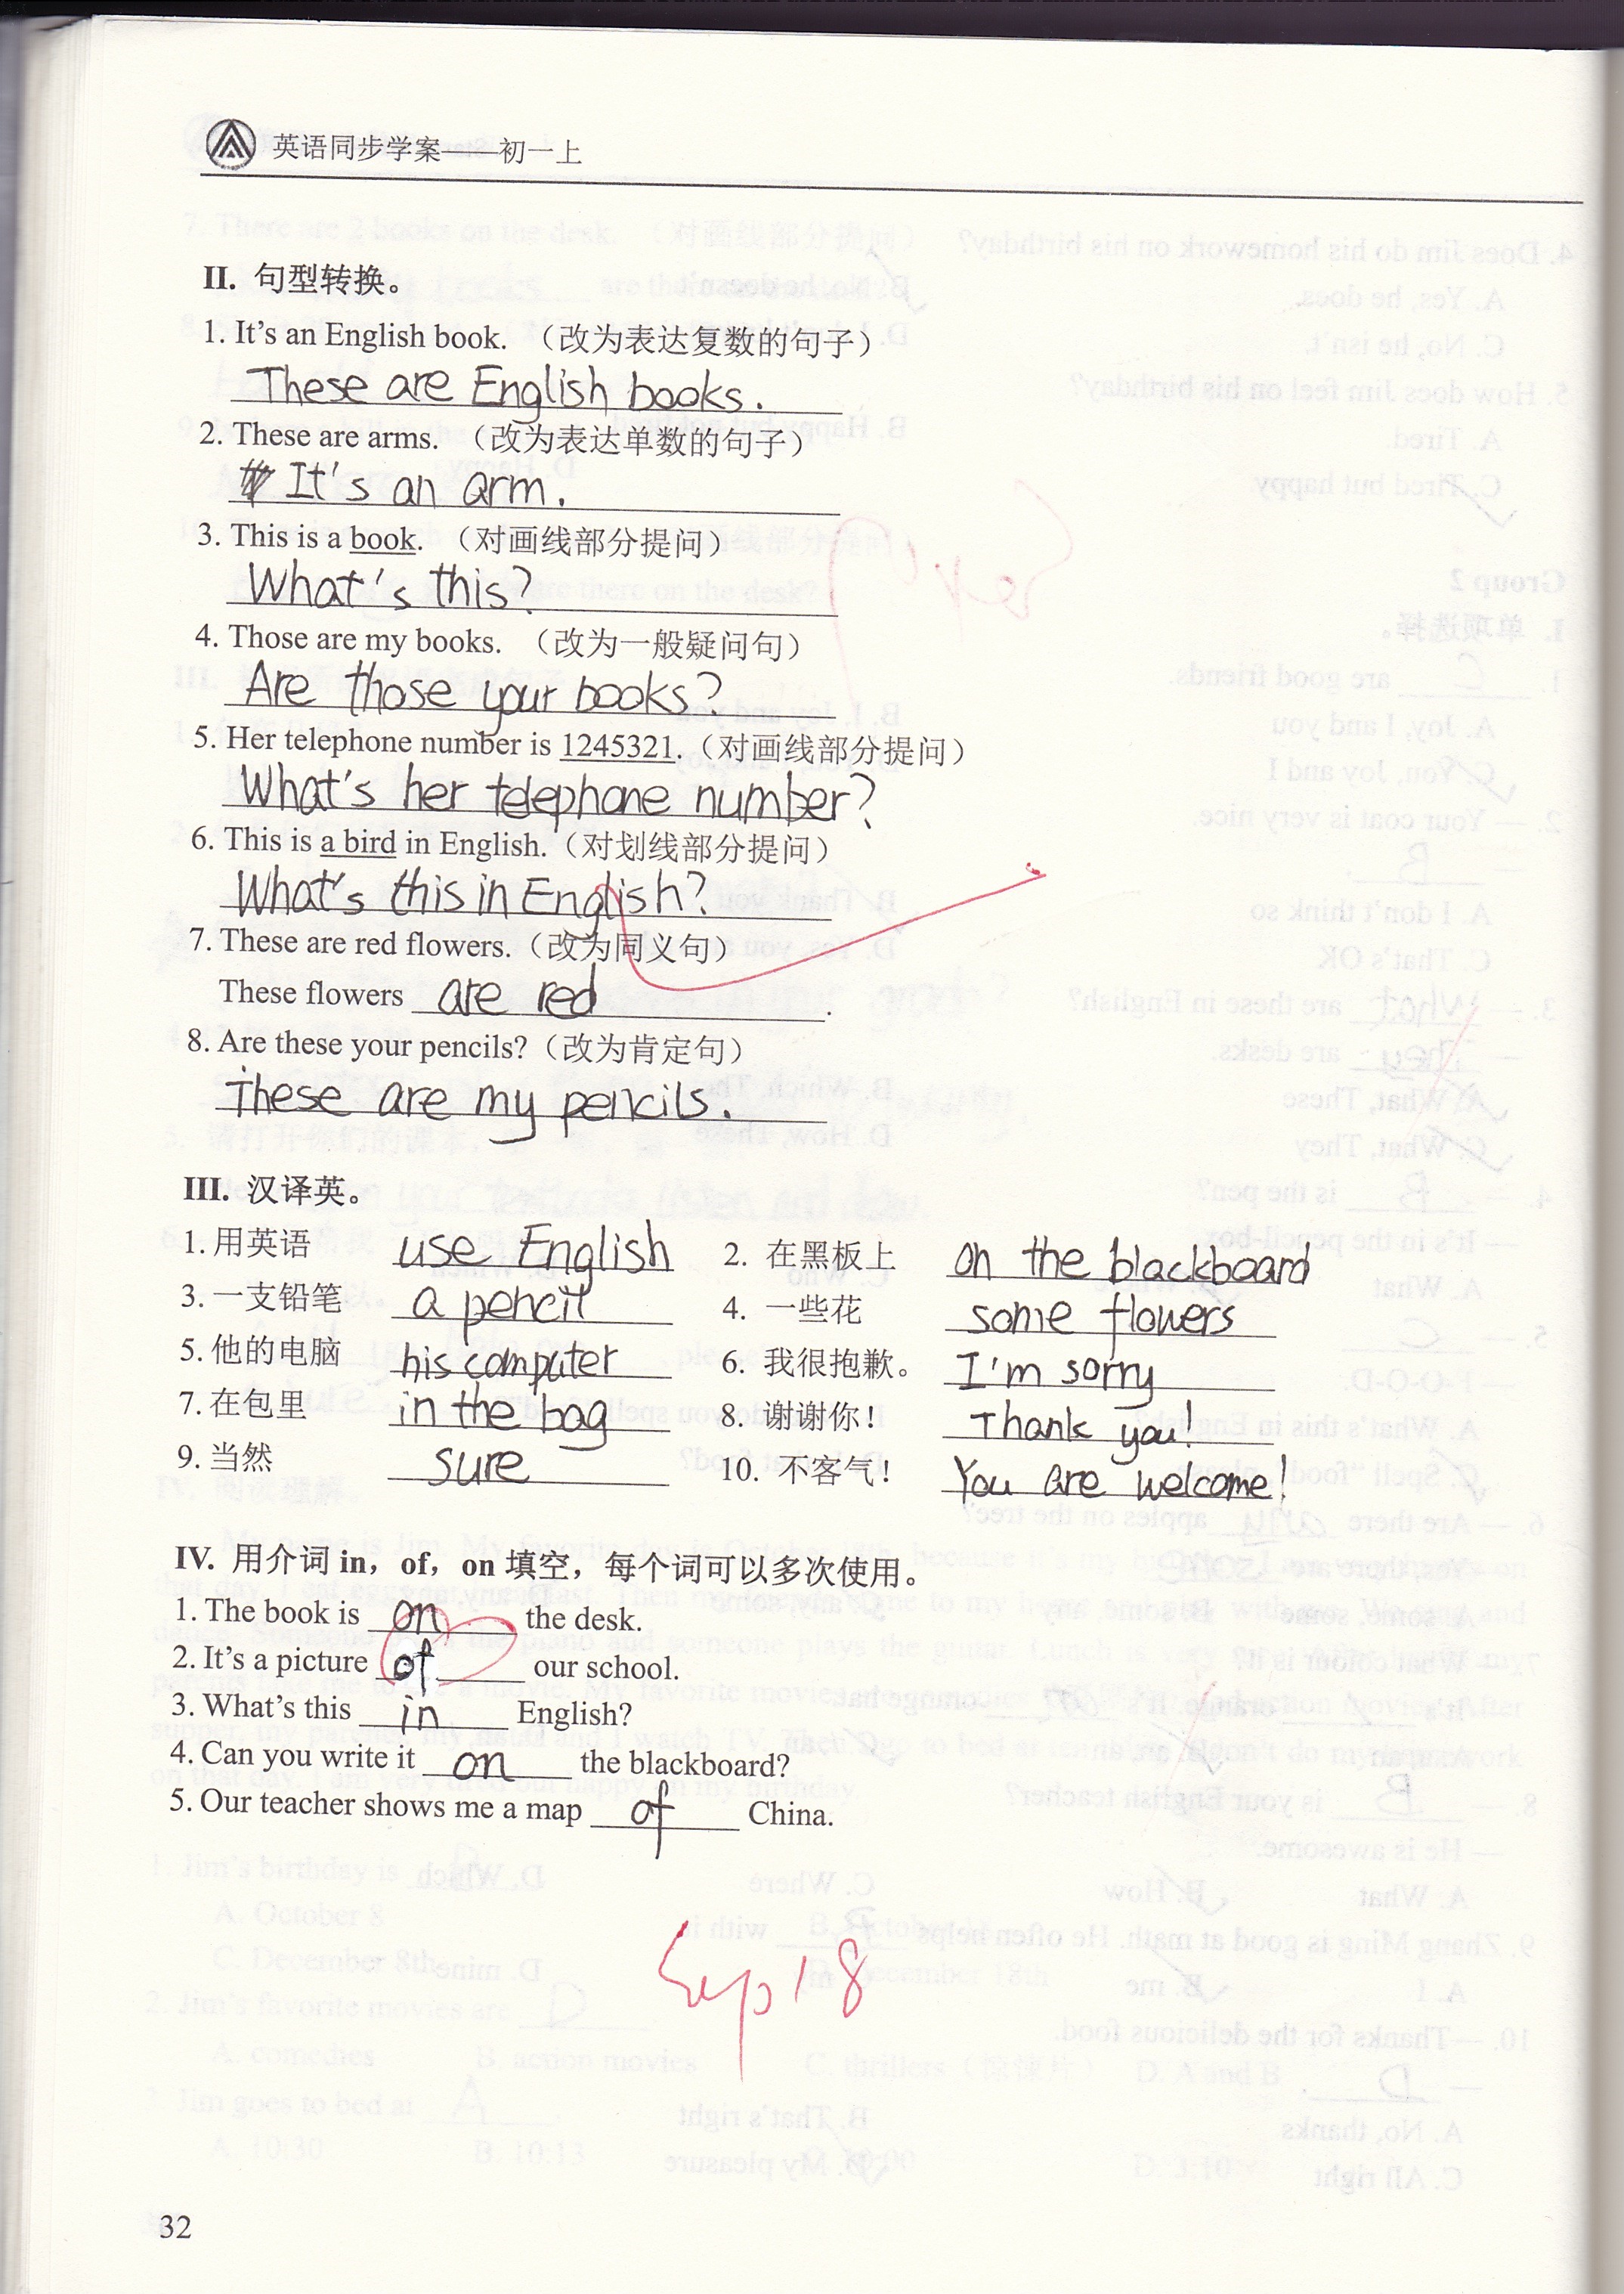 英语同步学案——初一上
II. 句型转换。
1. It's an English book. （改为表达复数的句子）
These are English books.
2. These are arms. （改为表达单数的句子）
It's an arm.
3. This is a book. （对画线部分提问）
What's this?
4. Those are my books. （改为一般疑问句）
Are those your books?
5. Her telephone number is 1245321.（对画线部分提问）
What's her telephone number?
6. This is a bird in English.（对划线部分提问）
What's this in English?
7. These are red flowers.（改为同义句）
These flowers are red.
8. Are these your pencils?（改为肯定句）
These are my pencils.
III. 汉译英。
1. 用英语 use English 2. 在黑板上 on the blackboard
3. 一支铅笔 a pencil 4. 一些花 some flowers
5. 他的电脑 his computer 6. 我很抱歉。 I'm sorry
7. 在包里 in the bag 8. 谢谢你！ Thank you!
9. 当然 sure 10. 不客气！ You are welcome!
IV. 用介词 in，of，on 填空，每个词可以多次使用。
1. The book is on the desk.
2. It's a picture of our school.
3. What's this in English?
4. Can you write it on the blackboard?
5. Our teacher shows me a map of China.
Sep 18
32